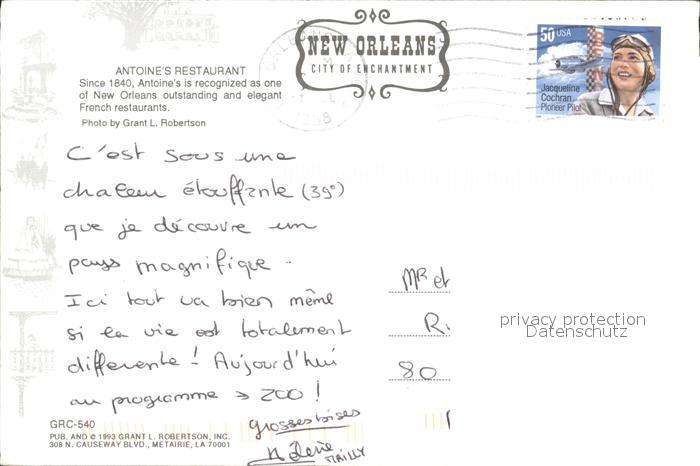 NEW ORLEANS
CITY OF ENCHANTMENT
50 USA
Jacqueline
Cochran
Pioneer Pilot
ANTOINE'S RESTAURANT
Since 1840, Antoine's is recognized as one
of New Orleans outstanding and elegant
French restaurants.
Photo by Grant L. Robertson
C'est sous une
chaleur étouffante (39°)
que je découvre un
pays magnifique.
Ici tout va bien même
si la vie est totalement
différente! Aujourd'hui
au programme → ZOO!
grosses bises
Hélène
MAILLY
Mr et
R
80
privacy protection
Datenschutz
GRC-540
PUB. AND © 1993 GRANT L. ROBERTSON, INC.
308 N. CAUSEWAY BLVD., METAIRIE, LA 70001